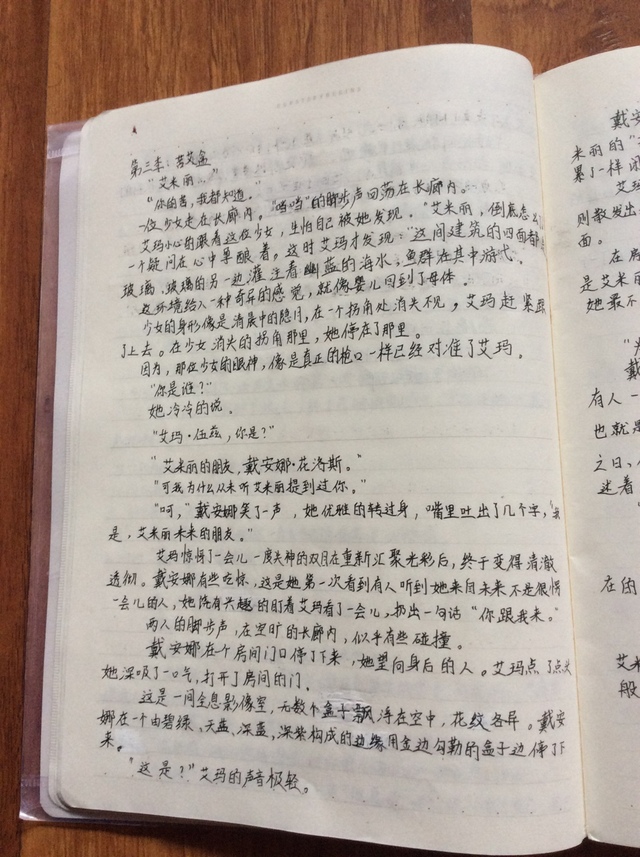 第三季：苦艾盒
“艾米丽…”
“你的苦，我都知道。”
一位少女走在长廊内。“哒哒”的脚步声回荡在长廊内。
艾玛小心的跟着这位少女，生怕自己被她发现。“艾米丽，倒底怎么
一个疑问在心中单酿着。这时艾玛才发现：这间建筑的四面都
玻璃、玻璃的另一边灌注着幽蓝的海水，鱼群在其中游弋、
这环境给人一种奇异的感觉，就像婴儿回到了母体。
少女的身形像是清晨中的隐月，在一个拐角处消失不见，艾玛赶紧跟
了上去。在少女消失的拐角那里，她停在了那里。
因为，那位少女的眼神，像是真正的枪口一样已经对准了艾玛。
“你是谁？”
她冷冷的说．
“艾玛·伍兹，你是？”
“艾米丽的朋友，戴安娜·花洛斯。”
“可我为什么从未听艾米丽提到过你。”
“呵，”戴安娜笑了一声，她优雅的转过身，嘴里吐出了几个字，“我
是，艾米丽未来的朋友。”
艾玛惊愕了一会儿 一度失神的双目在重新汇聚光彩后，终于变得清澈
透彻。戴安娜有些吃惊，这是她第一次看到有人听到她来自未来不是很愕
一会儿的人，她饶有兴趣的盯着艾玛看了一会儿，扔出一句话“你跟我来。”
两人的脚步声，在空旷的长廊内，似乎有些碰撞。
戴安娜在个房间门口停了下来，她望向身后的人。艾玛点了点头
她深吸了一口气，打开了房间的门．
这是一间全息影像室，无数个盒子飘浮在空中，花纹各异。戴安
娜在一个由碧绿、天蓝、深蓝，深紫构成的边缘用金边勾勒的盒子边停了下
来。
“这是？”艾玛的声音极轻。
戴安
米丽的“
累了一样
艾玛
则散发出
面。
在房
是艾米丽
她最不
戴
有人一
也就是
之日、
迷着
在的
艾米
般